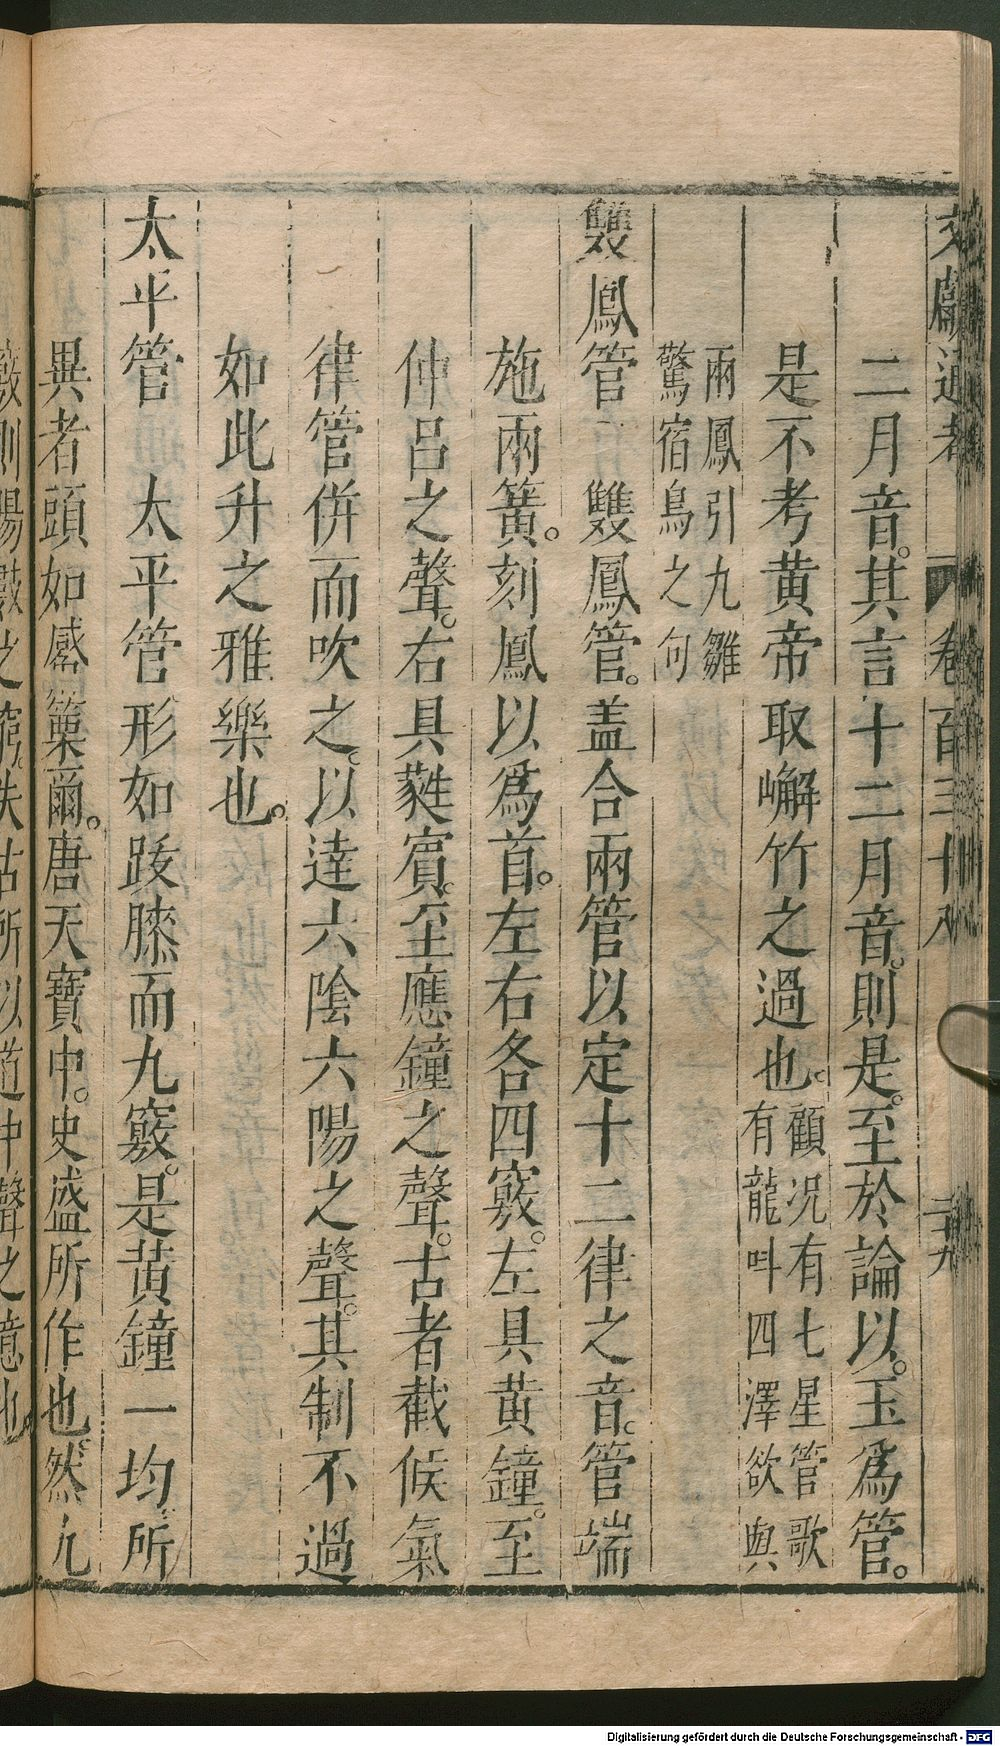 文獻通考 卷百三十八 二十九
二月音。其言十二月音。則是。至於論以。玉爲管。
是不考黃帝取嶰竹之過也。顧况有七星管歌
有龍叫四澤欲興
兩鳳引九雛
驚宿鳥之句
雙鳳管 雙鳳管。盖合兩管以定十二律之音。管端
施兩簧。刻鳳以爲首。左右各四竅。左具黃鐘。至
仲呂之聲。右具蕤賓。至應鐘之聲。古者截候氣
律管併而吹之。以達六陰六陽之聲。其制不過
如此升之雅樂也。
太平管 太平管形如跋膝而九竅。是黃鐘一均所
異者頭如觱篥爾。唐天寶中。史盛所作也。然九
竅則陽數之窮。失古所以道中聲之意也。
Digitalisierung gefördert durch die Deutsche Forschungsgemeinschaft - DFG